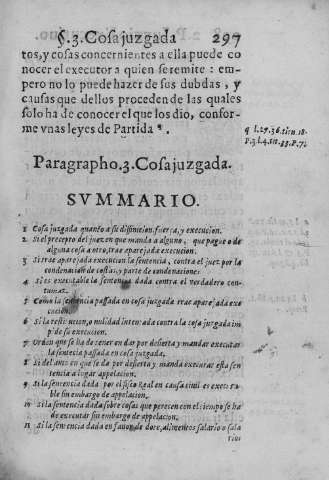 §.3. Cosa juzgada 297
tos, y cosas concernientes a ella puede co
nocer el executor a quien se remite: em-
pero no lo puede hazer de sus dubdas, y
causas que dellos proceden de las quales
solo ha de conocer el que los dio, confor-
me vnas leyes de Partida q.
q l.27.36.tit.18.
P.3.l.4.tit.33.P.7.
Paragrapho.3. Cosa juzgada.
SVMMARIO.
1 Cosa juzgada quanto a su disinicion, fuerça, y execucion.
2 Si el precepto del juez en que manda a alguno, que pague o de
alguna cosa a otro, trae aparejada execucion.
3 Si trae aparejada execucion la sentencia, contra el juez por la
condenacion de costas, y parte de condenacion:
4 Si es executable la sentencia dada contra el verdadero con-
tumaz.
5 Como la sentencia passada en cosa juzgada trae aparejada exe
cucion.
6 Si la restitucion, o nulidad intentada contra la cosa juzgada im
pide su execucion.
7 Orden que se ha de tener en dar por desierta y mandar executar
la sentecia passada en cosa juzgada.
8 Si del auto en que se da por desierta y manda executar esta sen
tencia a lugar appelacion.
9 Si la sentencia dada por el fisco Real en causa ciuil es executa
ble sin embargo de appelacion.
10 Si la sentencia dada sobre cosas que perecen con el tiempo se ha
de executar sin embargo de appelacion.
11 Si la sentencia dada en fauor de dote, alimentos salario o sola